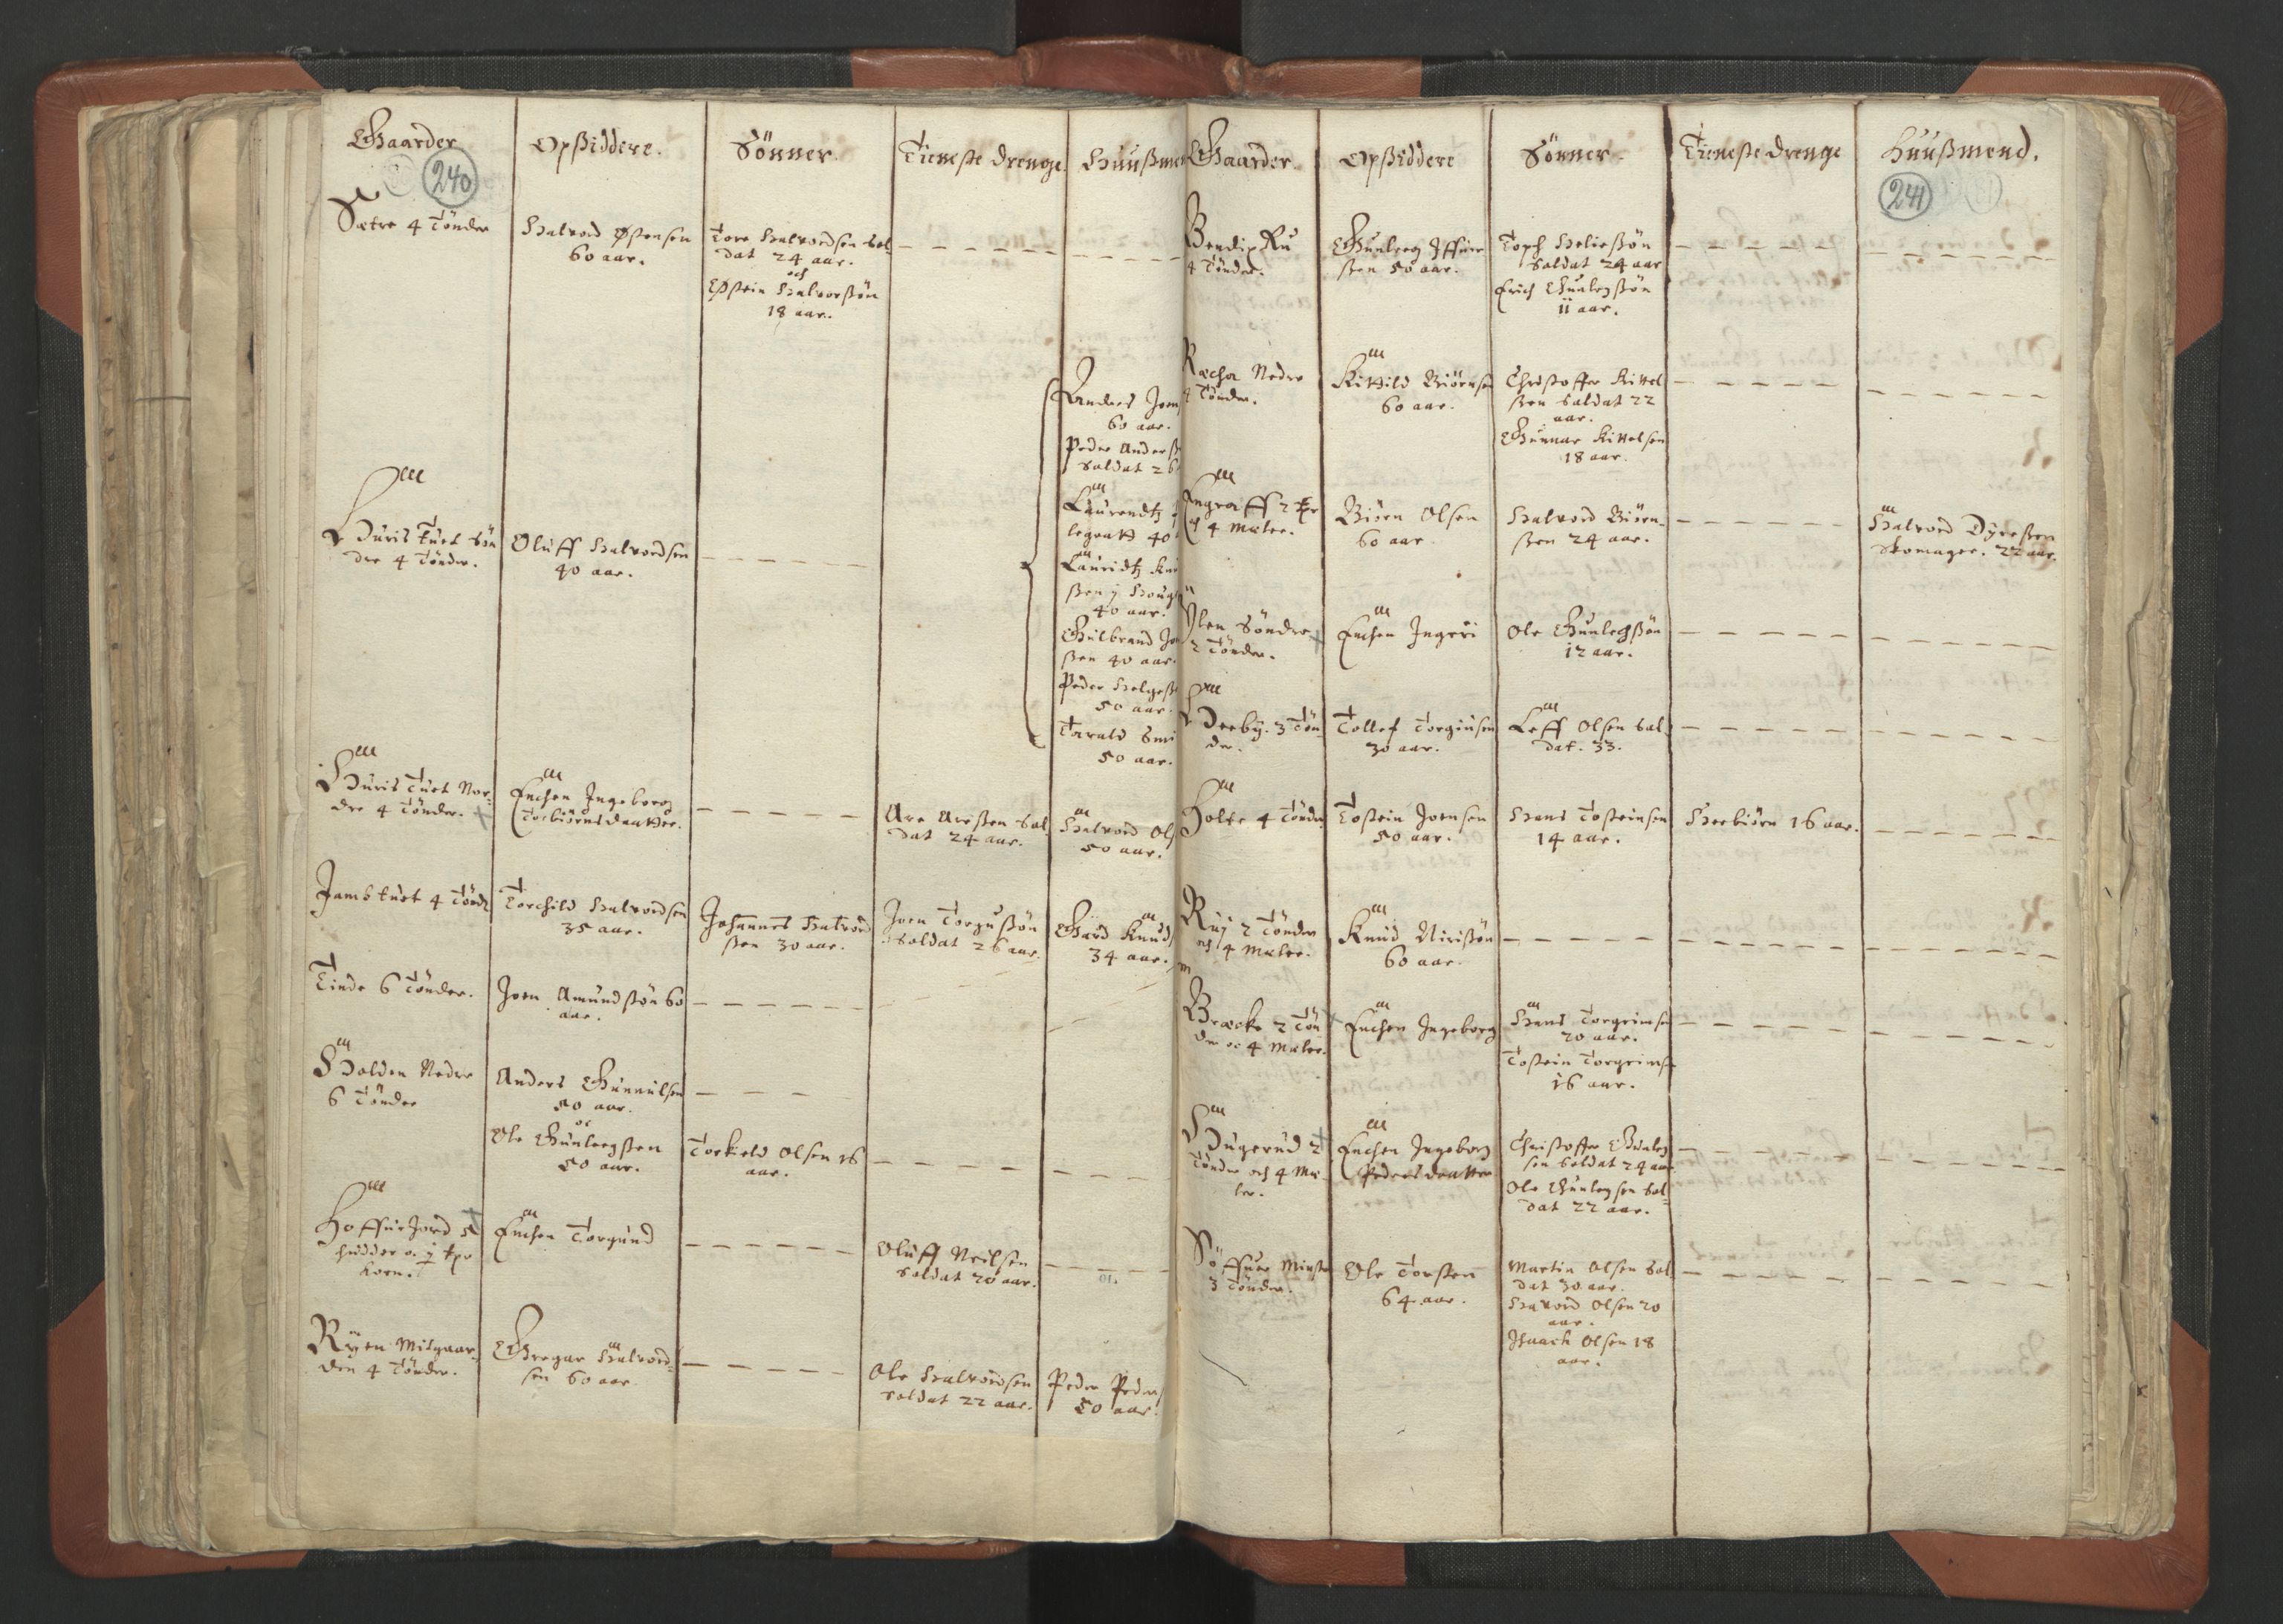 Gaarder
Opsiddere.
Sönner.
Tieneste drenge
Huusme
240
Sætre 4 Tönder
Halvord Østensen
60 aar.
Tore Halvordsen Sol
dat 24 aar.
och
Østein Halvorsøn
18 aar.
Anders Joen
60 aar.
Peder Anders
Soldat 26
Laurendtz
legratt 40
Lauridtz Kn
sen j Houg
40 aar.
Gulbrand Jo
sen 40 aar.
Peder Helges
50 aar.
Tarald Smi
50 aar.
Duris Tuet Sön
dre 4 Tönder.
Oluff Halvordsen
40 aar.
Duris Tuet Nor
dre 4 Tönder.
Enchen Ingeborg
Torbiörnsdaatter.
Are Aresen Sol
dat 24 aar.
Halvord Ols
50 aar.
Jambtuet 4 Tönd
Torchild Halvordsen
35 aar.
Johannes Halvord
sen 30 aar.
Joen Torgussøn
Soldat 26 aar.
Gard Knud
34 aar.
Tinde 6 Tönder.
Joen Amundsøn 60
aar.
Holden Nedre
6 Tönder
Anders Gunnulsen
50 aar.
oc
Ole Gunlegsen
50 aar.
Torkield Olsen 16
aar.
Hoffuejord 5
hudder oc j tpr
Korn.
Enchen Torgund
Oluff Neilsen
Soldat 20 aar.
Ryen Mitgaar
den 4 Tönder.
Gregar Halvord
sen 60 aar
Ole Halvordsen
Soldat 22 aar.
Peder Peders
50 aar.
Gaarder.
Opsiddere
Sönner.
Tieneste drenge
Huusmend.
241
Bendix Ru
4 Tönder.
Gunleeg Iffuer
sen 50 aar.
Soldat 24 aar
Erich Gunlegsøn
11 aar.
Racha Nedre
4 Tönder.
Kittild Biörnsen
60 aar.
Christoffer Kittel
sen Soldat 22
aar.
Gunnar Kittelsen
18 aar.
Engraff 2 tpr
och 4 Mæler.
Biörn Olsen
60 aar
Halvord Biörn
sen 24 aar.
Halvord Dyresen
Skomager. 22 aar.
Ilen Söndre
2 Tönder.
Enchen Ingeri
Ole Gunlegsøn
12 aar.
Deeby. 3 Tön
der.
Tollef Torgiusen
30 aar.
Leff Olsen Sol
dat. 33.
Holte 4 Tönder
Tostein Joensen
50 aar.
Hans Tosteinsen
14 aar.
Herbiörn 16 aar.
Ruj 2 Tönder
och 4 Mæler.
Knud Nirisøn
60 aar.
Bræcke 2 Tön
der oc 4 Mæler.
Enchen Ingeborg
Hans Torgrimsen
20 aar.
Tostein Torgrimsen
16 aar.
Dugerud 2
Tönder och 4 Mæ
ler.
Enchen Ingeborg
Pedersdaatter
Christoffer Gunleg
sen Soldat 24 aar
Ole Gunlegsen Sol
dat 22 aar.
Söffuer Minste
3 Tönder.
Ole Torsten
64 aar.
Martin Olsen Sol
dat 30 aar.
Halvord Olsen 20
aar.
Isaach Olsen 18
aar.